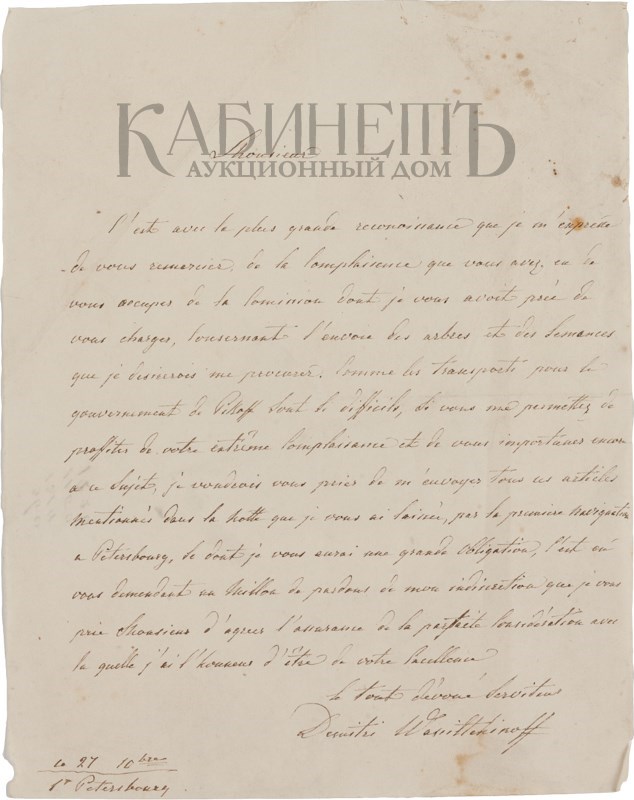 КАБИНЕТЪ
АУКЦИОННЫЙ ДОМ
Monsieur
C'est avec la plus grande reconoissance que je m'empresse
de vous remercier, de la Complaisence que vous avez eu de
vous occuper de la Comission dont je vous avoit prié de
vous charger, Consernant l'envoie des arbres et des Semances
que je desirerois me procurer. Comme les transports pour le
gouvernement de Pskoff Sont Si difficils, Si vous me permettez de
proffiter de votre extrême Complaisance et de vous importuner encore
a ce Sujet, je voudrois vous prier de m'envoyer tous ces articles
mentionnés dans la Notte que je vous ai laissée, par la premiere navigation
a Petersbourg, Ce dont je vous aurai une grande obligation, C'est en
vous demendant un Million de pardons de mon indiscretion que je vous
prie Monsieur d'agreer l'assurance de la parfaite Considération avec
la quelle j'ai l'honneur d'être de votre Excellence
le tout dévoué Serviteur
Demitri
ce 27 10bre
St Petersbourg